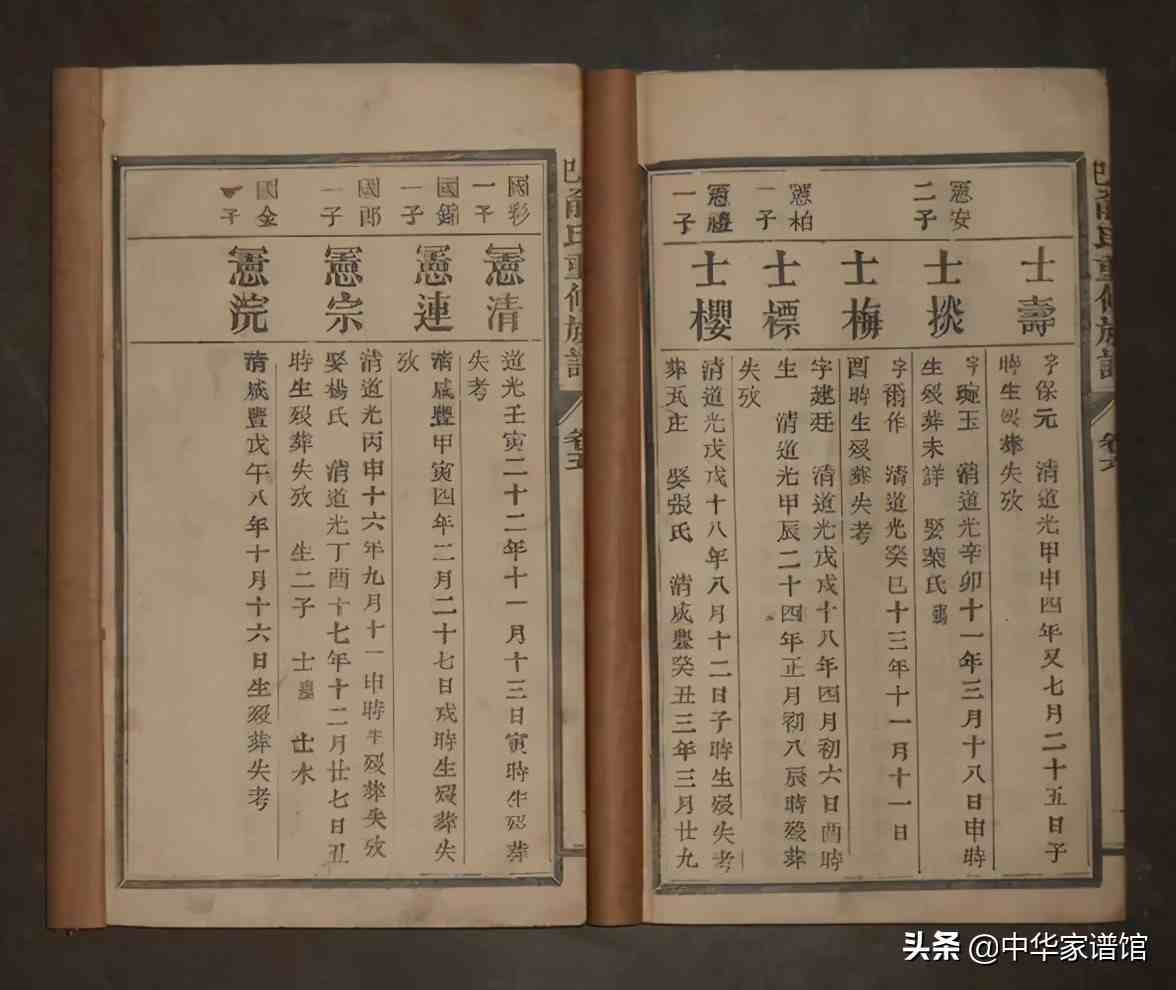 憲安
二子
憲柏
一子
憲禮
一子
士壽
士掞
士梅
士標
士櫻
字保元 清道光甲申四年又七月二十五日子
時生殁葬失攷
字琬玉 清道光辛卯十一年三月十八日申時
生殁葬未詳 娶葉氏
字爾作 清道光癸巳十三年十一月十一日
酉時生殁葬失考
字建廷 清道光戊戌十八年四月初六日酉時
生 清道光甲辰二十四年正月初八辰時殁葬
失攷
清道光戊戌十八年八月十二日子時生殁失考
葬瓦庄 娶張氏 清咸豐癸丑三年三月廿九
俞氏重修族譜
國彩
一子
國錦
一子
國郎
一子
國金
子
憲清
憲連
憲宗
憲浣
道光壬寅二十二年十一月十三日寅時生殁葬
失考
清咸豐甲寅四年二月二十七日戌時生殁葬失
攷
清道光丙申十六年九月十一申時生殁葬失攷
娶楊氏 清道光丁酉十七年十二月廿七日丑
時生殁葬失攷 生二子 士 士木
清咸豐戊午八年十月十六日生殁葬失考
俞氏重修族譜
头条 @中华家谱馆